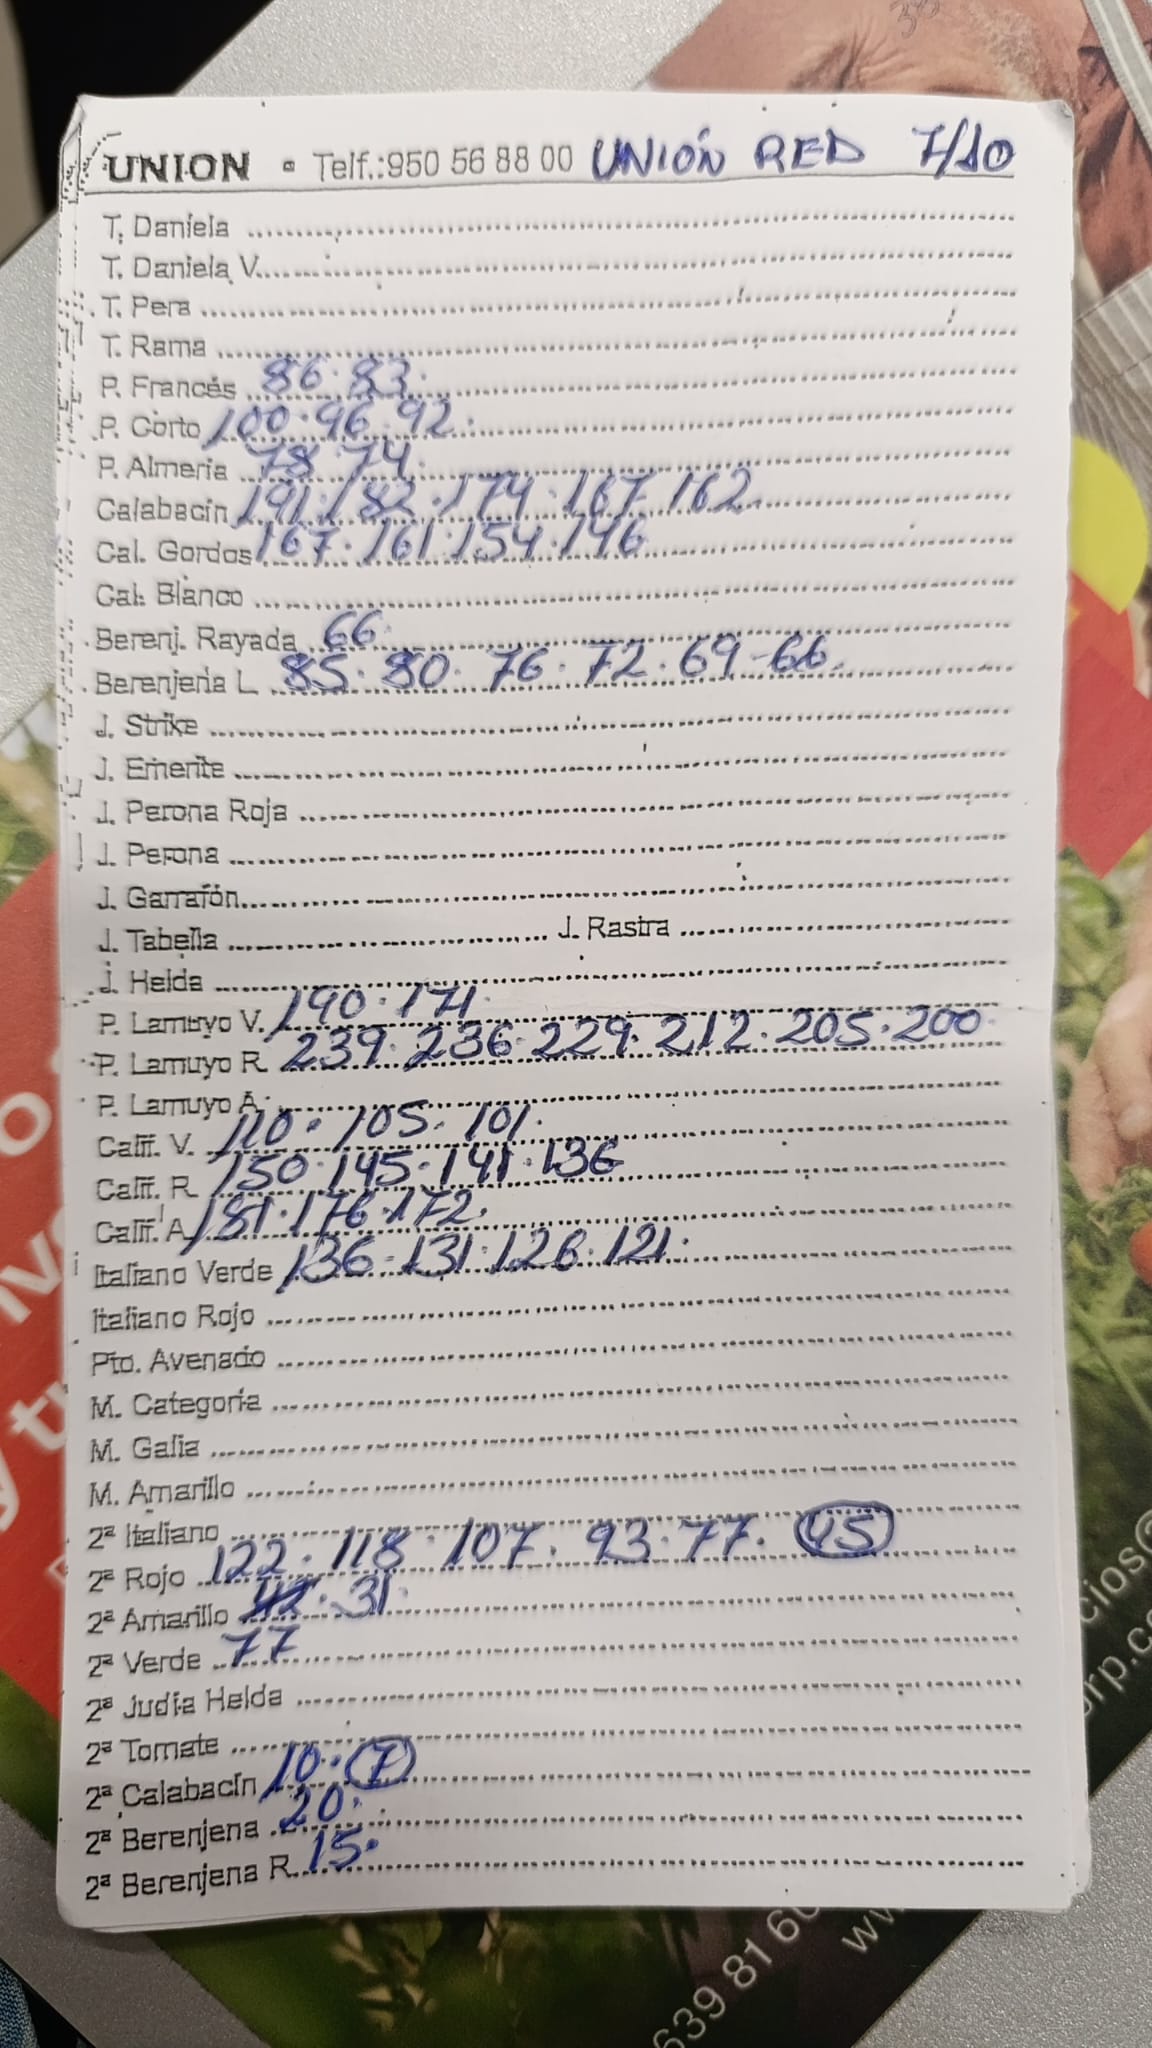 UNION - Telf.:950 56 88 00 UNIÓN RED 7/10
T. Daniela
T. Daniela V.
T. Pera
T. Rama
P. Francés 86·83·
P. Corto 100·96·92·
P. Almeria 78·74·
Calabacin 191·182·174·167·162
Cal. Gordos 167·161·154·146
Cal. Blanco
Berenj. Rayada 66·
Berenjena L 85·80·76·72·69-66
J. Strike
J. Emerite
J. Perona Roja
J. Perona
J. Garrafón
J. Tabella J. Rastra
J. Helda
P. Lamuyo V. 190·171·
P. Lamuyo R. 239·236·229·212·205·200
P. Lamuyo A.
Calif. V. 110·105·101·
Calif. R. 150·145·141·136
Calif. A 181·176·172·
Italiano Verde 136·131·126·121·
Italiano Rojo
Pto. Avenado
M. Categoría
M. Galia
M. Amarillo
2ª Italiano
2ª Rojo 122·118·107·93·77·45
2ª Amarillo 42·31·
2ª Verde 77
2ª Judía Helda
2ª Tomate
2ª Calabacín 10·7
2ª Berenjena 20·
2ª Berenjena R. 15·
639 81 60